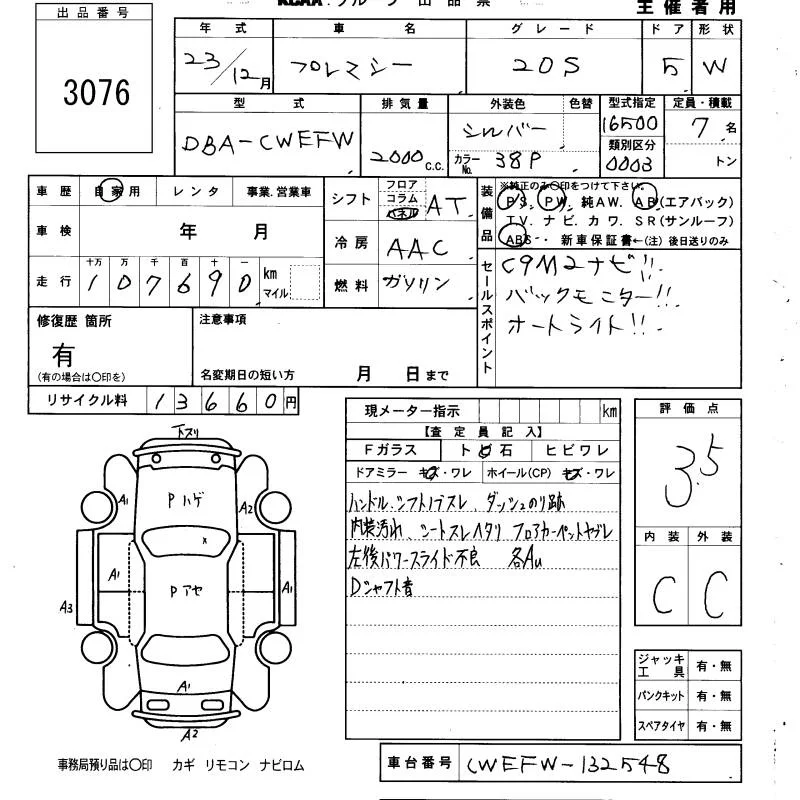 KCAA. グループ 出品票 主催者用
出品番号
3076
年式 車名 グレード ドア 形状
23/12月 プレマシー 20S 5 W
型式 排気量 外装色 色替 型式指定 定員・積載
DBA-CWEFW 2000c.c. シルバー 16500 7名
カラーNo. 38P 類別区分 0003 トン
車歴 自家用 レンタ 事業.営業車
車検 年 月
十万 万 千 百 十 一
走行 107690 km マイル
シフト フロア コラム パネル AT
冷房 AAC
燃料 ガソリン
装備品 ※純正のみ○印をつけて下さい。
PS. PW. 純AW. AB(エアバック)
TV. ナビ. カワ. SR(サンルーフ)
ABS・ 新車保証書←(注) 後日送りのみ
セールスポイント
C9M2ナビ!!.
バックモニター!!.
オートライト!!.
修復歴 箇所
有
(有の場合は○印を)
注意事項
名変期日の短い方 月 日まで
リサイクル料 13660円
現メーター指示 km
【査定員記入】
Fガラス トビ石 ヒビワレ
ドアミラー キズ・ワレ ホイール(CP) キズ・ワレ
ハンドル、シフトノブスレ、ダッシュのり跡
内装汚れ、シートスレヘタリ フロアカーペットヤブレ
左後パワースライド不良 各Au
Dシャフト音
評価点
3.5
内装 外装
C C
ジャッキ工具 有・無
パンクキット 有・無
スペアタイヤ 有・無
下スリ
Pハゲ
A1 A2
x
A1 Pアセ A1
A3
A1
A2
事務局預り品は○印 カギ リモコン ナビロム
車台番号 CWEFW-132548